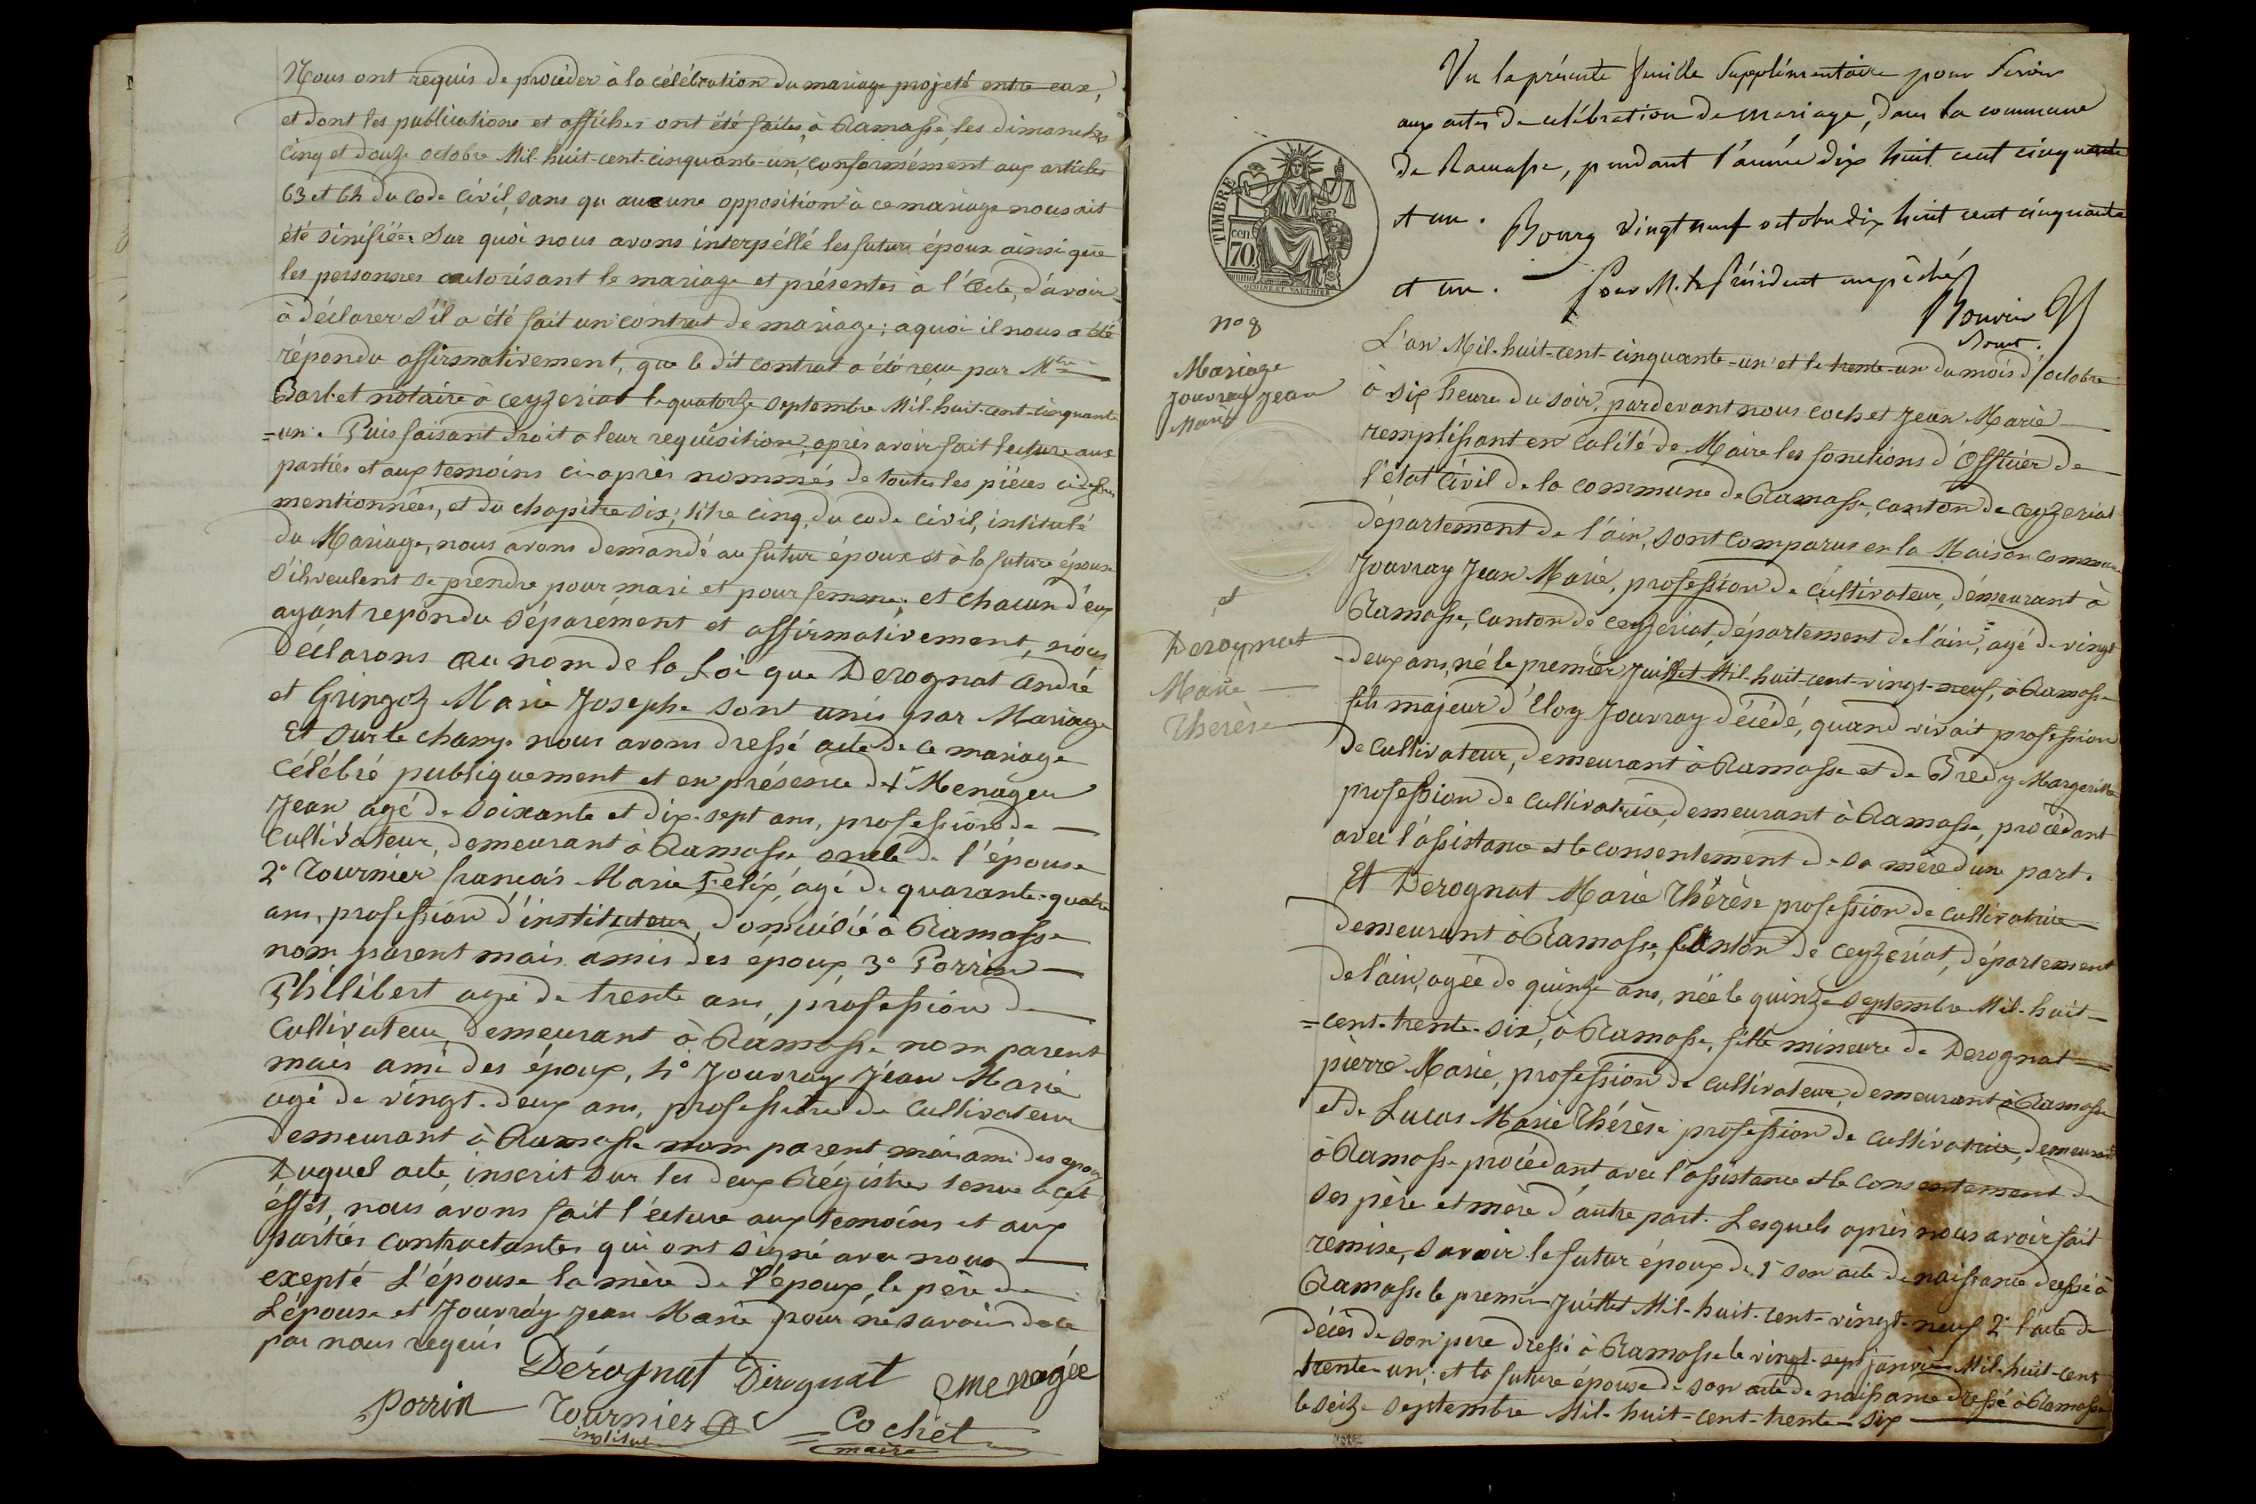 Nous ont requis de procéder à la célébration du mariage projeté entre eux,
et dont les publications et affiches ont été faites, à Ramasse, les dimanches
cinq et douze octobre Mil-huit-cent-cinquante-un, conformément aux articles
63 et 64 du Code Civil, sans qu'aucune opposition à ce mariage nous ait
été sinifiée. Sur quoi nous avons interpéllé les futurs époux ainsi que
les personnes autorisant le mariage et présentes à l'acte, d'avoir
à déclarer s'il a été fait un contrat de mariage; aquoi il nous a été
répondu affirmativement, que le dit contrat a été reçu par Mtre
Barbet notaire à Ceyzeriat le quatorze septembre Mil-huit-cent-cinquante
=un. Puis faisant droit a leur requisition, après avoir fait lecture aux
parties et aux temoins ci-après nommés de toutes les pièces ci dessus
mentionnées, et du chapitre six; titre cinq, du code civil, intitulé
du Mariage, nous avons demandé au futur époux et à la future épouse
s'ils veulent se prendre pour mari et pour femme; et chacun d'eux
ayant repondu séparément et affirmativement, nous
déclarons au nom de la Loi que Derognat André
et Gringoz Marie Josephe sont unis par Mariage
Et sur le champ nous avons dressé acte de ce mariage
célébré publiquement et en présence de 1° Menageu
Jean agé de soixante et dix-sept ans, profession de
Cultivateur, demeurant à Ramasse oncle de l'épouse
2° Tournier français Marie Felix, agé de quarante-quatre
ans, profession d'instituteur, domicilié à Ramasse
nom parent mais amis des époux, 3° Porrin
Philibert agé de trente ans, profession de
Cultivateur demeurant à Ramasse nom parent
mais ami des époux, 4° Jouvray Jean Marie
agé de vingt-deux ans, profession de Cultivateur
demeurant à Ramasse nom parent mais ami des epoux
Duquel acte, inscrit sur les deux Régistres tenus à cet
éffet, nous avons fait l'écture aux temoins et aux
parties contractantes qui ont signé avec nous
exepté L'épouse la mère de l'époux, le père de
L'épouse et Jouvray Jean Marie pour ne savoir de ce
par nous requis
Dérognat Derognat Menagée
Porrin Tournier Cochet
institut maire
Vu la présente feuille Supplémentaire pour servir
aux actes de célébration de mariage, dans la commune
de Ramasse, pendant l'année dix huit cent cinquante
et un. Bourg vingt neuf octobre dix huit cent cinquante
et un. Pour M. le Président empêché
TIMBRE
cen.
70
n° 8
Mariage
Jouvray Jean
Marie
et
Derognat
Marie
Therèse
L'an Mil-huit-cent-cinquante-un et le trente-un du mois d'octobre
à six heure du soir, pardevant nous Cochet Jean Marie
remplissant en calité de Maire les fonctions d'Officier de
l'état Civil de la commune de Ramasse, canton de Ceyzeriat
département de l'ain, sont comparus en la Maison commune
Jouvray Jean Marie, profession de cultivateur, demeurant à
Ramasse, canton de Ceyzeriat, département de l'ain, agé de vingt
-deux ans, né le premier Juillet Mil-huit-cent-vingt-neuf, à Ramasse
fils majeur d'Eloy Jouvray décédé, quand vivait profession
de Cultivateur, demeurant à Ramasse et de Bredy Margeritte
profession de Cultivatrice, demeurant à Ramasse, procédant
avec l'assistance et le consentement de sa mère d'une part.
Et Derognat Marie Thérèse profession de Cultivatrice
demeurant à Ramasse, Canton de Ceyzeriat, département
de l'ain, agée de quinze ans, née le quinze septembre Mil-huit-
=cent-trente-six, à Ramasse, fille mineure de Derognat
pièrre Marie, profession de Cultivateur, demeurant à Ramasse
et de Lucas Marie Thérèse profession de Cultivatrice, demeurant
à Ramasse procédant avec l'assistance et le consentement de
ses père et mère d'autre part. Lesquels après nous avoir fait
remise, savoir le futur époux de 1° son acte de naissance dressé à
Ramasse le premier Juillet Mil-huit-cent-vingt-neuf 2° l'acte de
décès de son pere dressé à Ramasse le vingt-sept janvier Mil-huit-cent
trente-un; et la future épouse de son acte de naissance dressé à Ramasse
le seize septembre Mil-huit-cent-trente-six